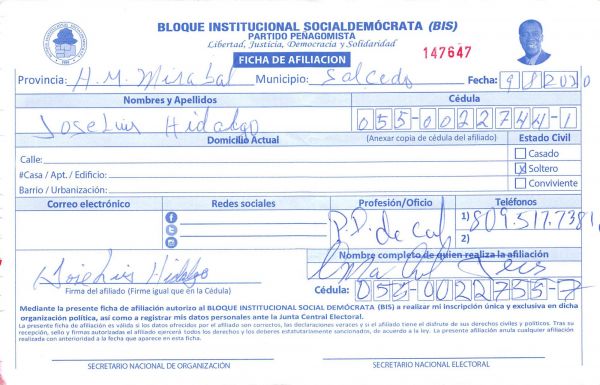 BLOQUE INSTITUCIONAL SOCIALDEMÓCRATA (BIS)
PARTIDO PEÑAGOMISTA
Libertad, Justicia, Democracia y Solidaridad
FICHA DE AFILIACION
147647
Provincia: H.M. Mirabal Municipio: Salcedo Fecha: 9 8 2020
Nombres y Apellidos Cédula
Jose Luis Hidalgo 055-0022744-1
Domicilio Actual (Anexar copia de cédula del afiliado) Estado Civil
Calle: Casado
#Casa / Apt. / Edificio: x Soltero
Barrio / Urbanización: Conviviente
Correo electrónico Redes sociales Profesión/Oficio Teléfonos
P.P. de 1) 809.517.7381
2)
Nombre completo de quien realiza la afiliación
Jose Luis Hidalgo
Firma del afiliado (Firme igual que en la Cédula) Cédula: 055-0022755-7
Mediante la presente ficha de afiliación autorizo al BLOQUE INSTITUCIONAL SOCIAL DEMÓCRATA (BIS) a realizar mi inscripción única y exclusiva en dicha
organización política, así como a registrar mis datos personales ante la Junta Central Electoral.
La presente ficha de afiliación es válida si los datos ofrecidos por el afiliado son correctos, las declaraciones veraces y si el afiliado tiene el disfrute de sus derechos civiles y políticos. Tras su
recepción, sello y firmas autorizadas el afiliado ejercerá todos los derechos y los deberes estatutariamente sancionados, de acuerdo a la ley. La presente afiliación anula cualquier afiliación
realizada con anterioridad a la fecha que aparece en esta ficha.
SECRETARIO NACIONAL DE ORGANIZACIÓN SECRETARIO NACIONAL ELECTORAL